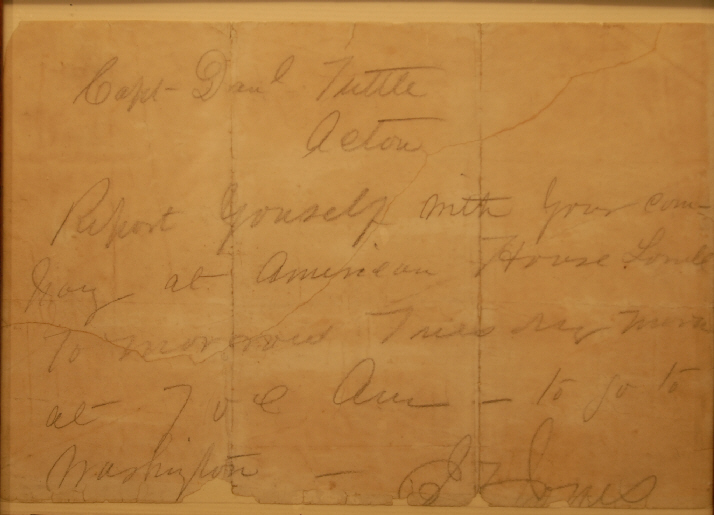 Capt- Danl Tuttle
Acton
Report Youself with Your com-
pany at American House Lowell
To morrow Tuesday morn
at 7 ocl Am - to go to
Washington -
Jones